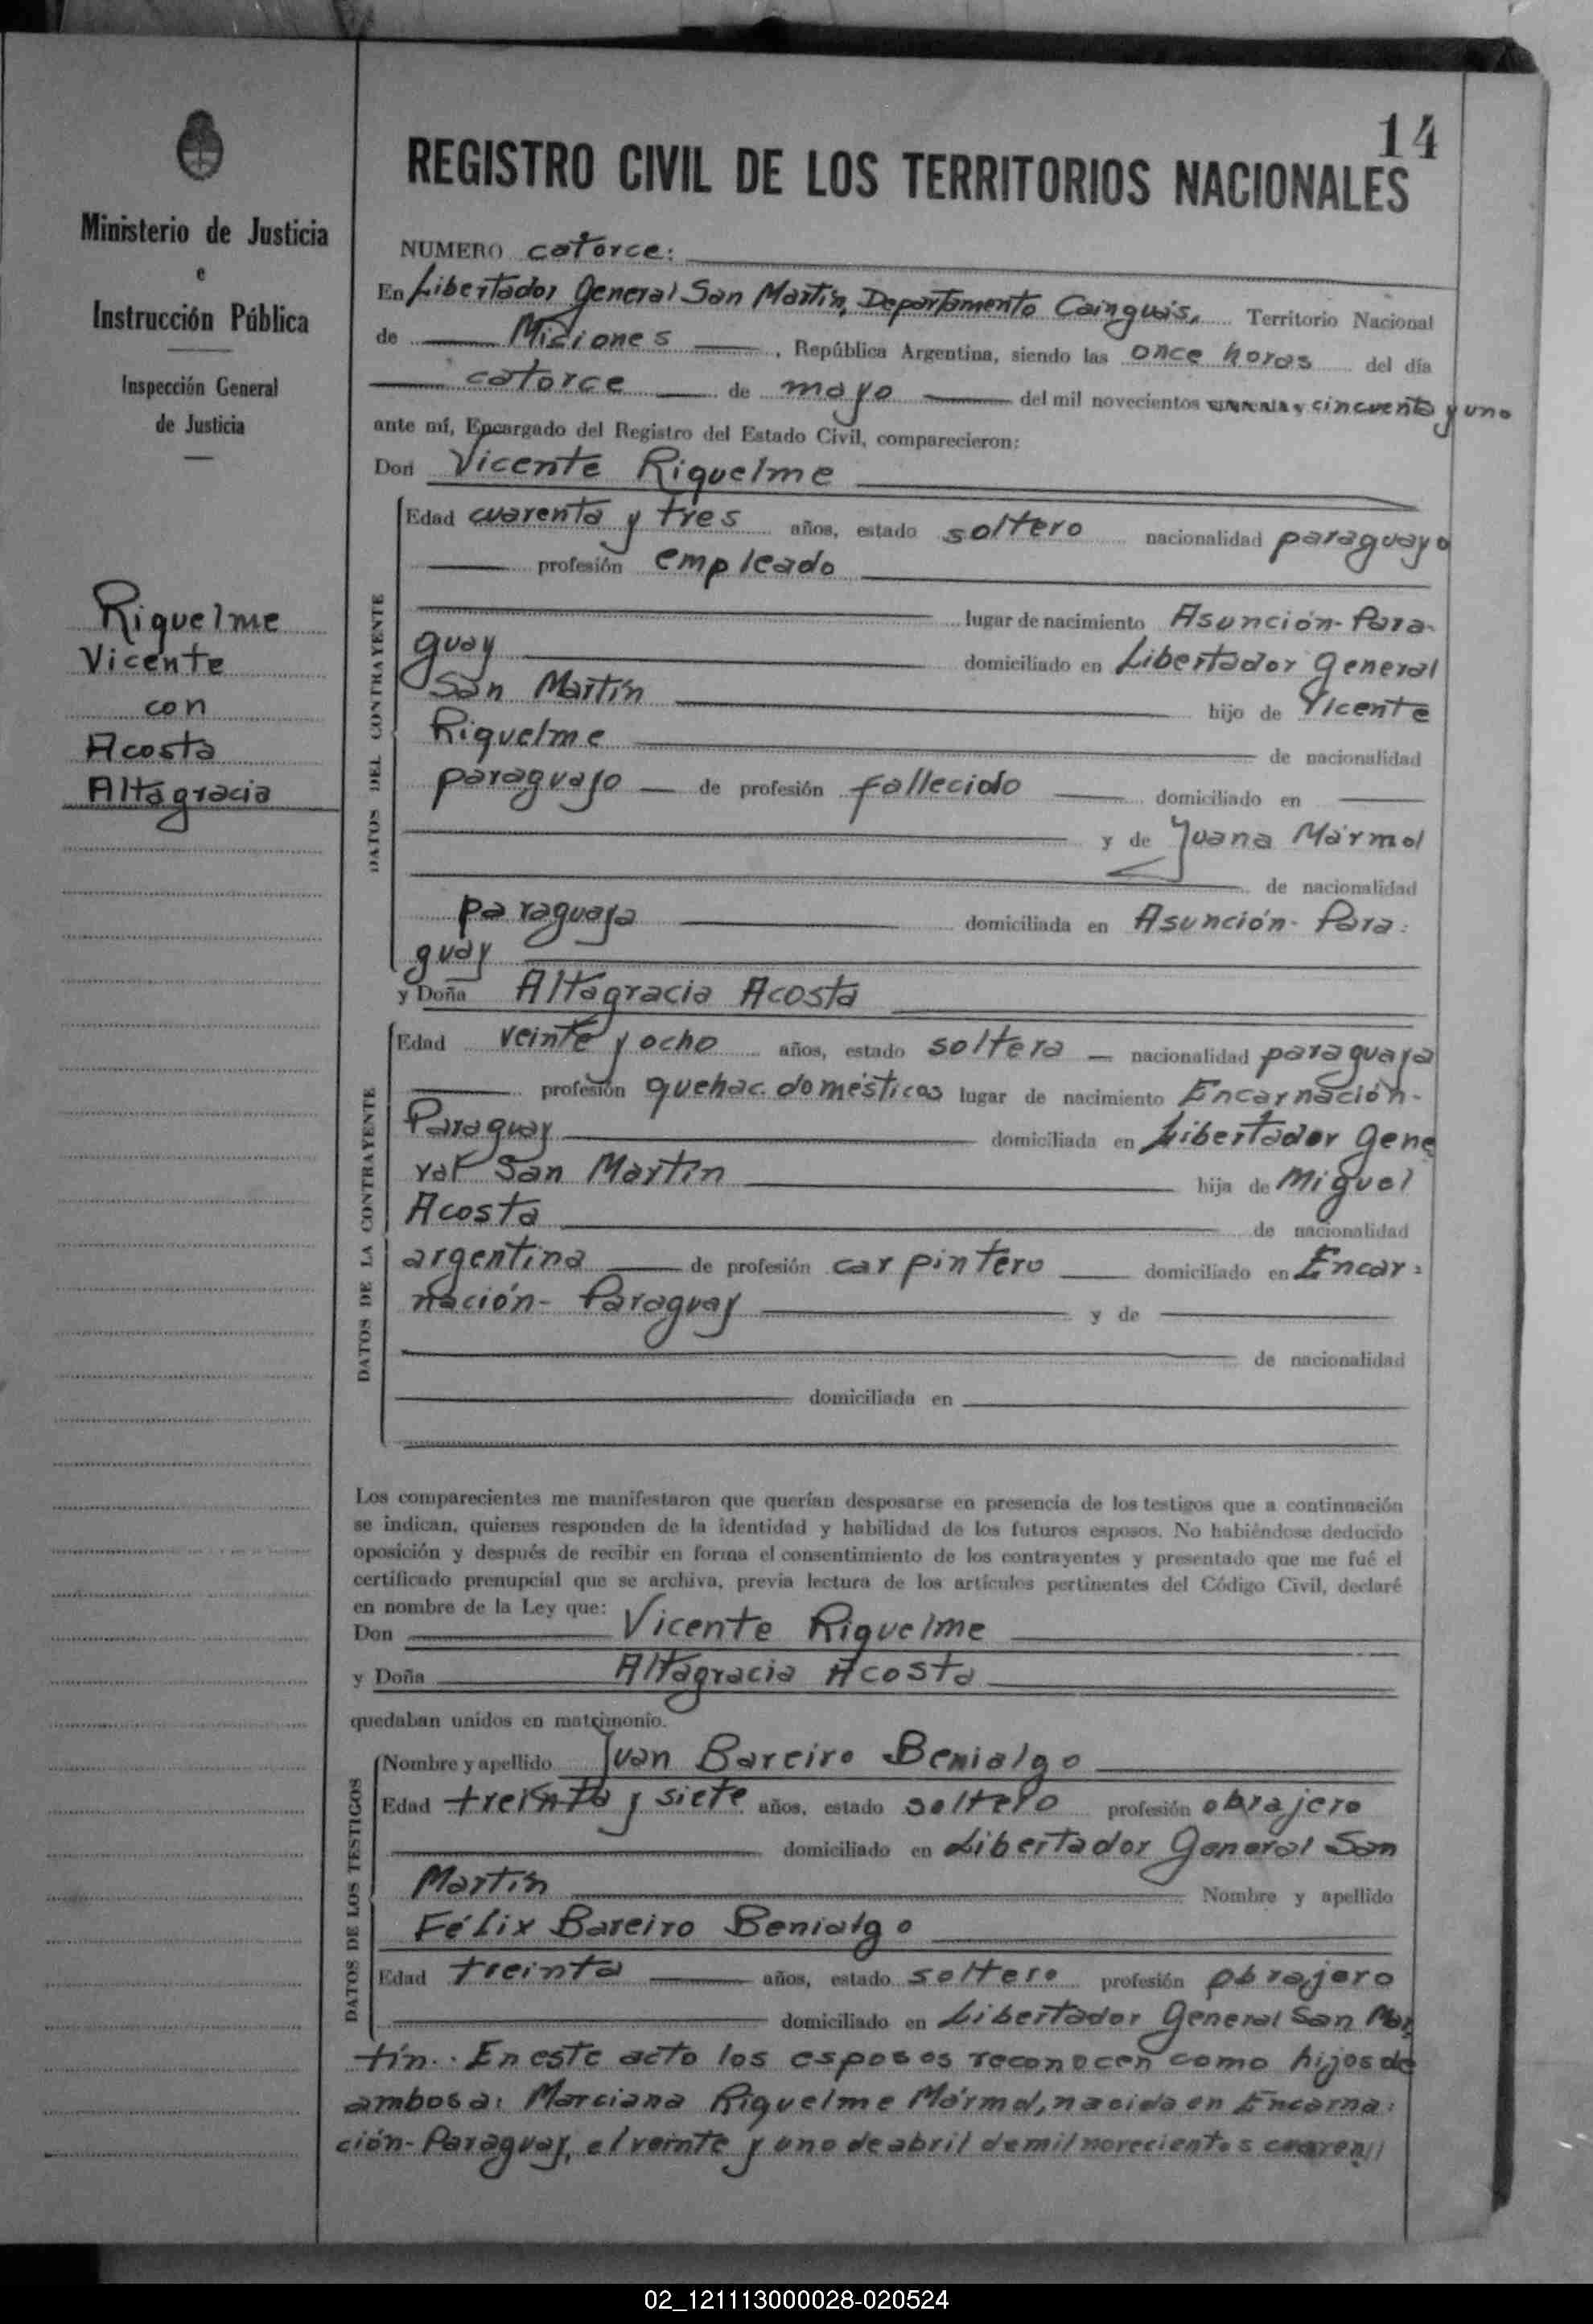 14
REGISTRO CIVIL DE LOS TERRITORIOS NACIONALES
Ministerio de Justicia
e
Instrucción Pública
Inspección General
de Justicia
Riquelme
Vicente
con
Acosta
Altagracia
NUMERO catorce:
En Libertador General San Martín, Departamento Cainguás, Territorio Nacional
de Misiones, República Argentina, siendo las once horas del día
catorce de mayo del mil novecientos cincuenta y uno
ante mí, Encargado del Registro del Estado Civil, comparecieron:
Don Vicente Riquelme
DATOS DEL CONTRAYENTE
Edad cuarenta y tres años, estado soltero nacionalidad paraguayo
profesión empleado
lugar de nacimiento Asunción- Para-
guay domiciliado en Libertador General
San Martín hijo de Vicente
Riquelme de nacionalidad
paraguayo de profesión fallecido domiciliado en
y de Juana Mármol
de nacionalidad
paraguaya domiciliada en Asunción- Para:
guay
y Doña Altagracia Acosta
DATOS DE LA CONTRAYENTE
Edad veinte y ocho años, estado soltera nacionalidad paraguaya
profesión quehac. domésticos lugar de nacimiento Encarnación-
Paraguay domiciliada en Libertador Gene
ral San Martín hija de Miguel
Acosta de nacionalidad
argentina de profesión carpintero domiciliado en Encar:
nación- Paraguay y de
de nacionalidad
domiciliada en
Los comparecientes me manifestaron que querían desposarse en presencia de los testigos que a continuación
se indican, quienes responden de la identidad y habilidad de los futuros esposos. No habiéndose deducido
oposición y después de recibir en forma el consentimiento de los contrayentes y presentado que me fué el
certificado prenupcial que se archiva, previa lectura de los artículos pertinentes del Código Civil, declaré
en nombre de la Ley que:
Don Vicente Riquelme
y Doña Altagracia Acosta
quedaban unidos en matrimonio.
DATOS DE LOS TESTIGOS
Nombre y apellido Juan Bareiro Benialgo
Edad treinta y siete años, estado soltero profesión obrajero
domiciliado en Libertador General San
Martín Nombre y apellido
Félix Bareiro Benialgo
Edad treinta años, estado soltero profesión obrajero
domiciliado en Libertador General San Mar
tín.. En este acto los esposos reconocen como hijos de
ambos a: Marciana Riquelme Mármol, nacida en Encarna:
ción- Paraguay, el veinte y uno de abril de mil novecientos cuaren//
02_121113000028-020524